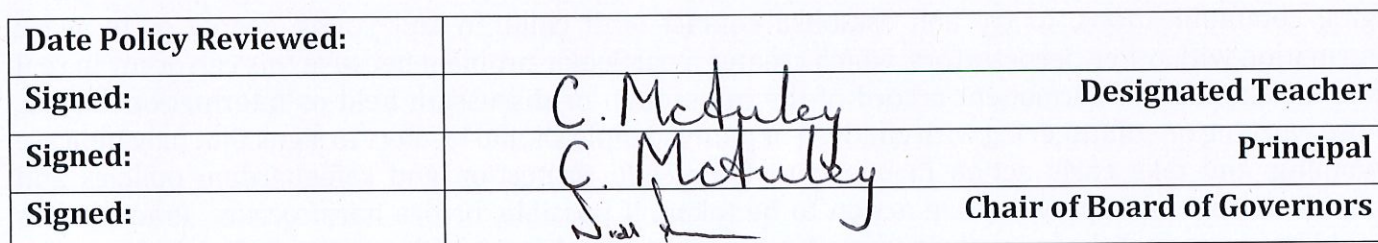 Date Policy Reviewed:
Signed: C. McAuley Designated Teacher
Signed: C. McAuley Principal
Signed: Chair of Board of Governors